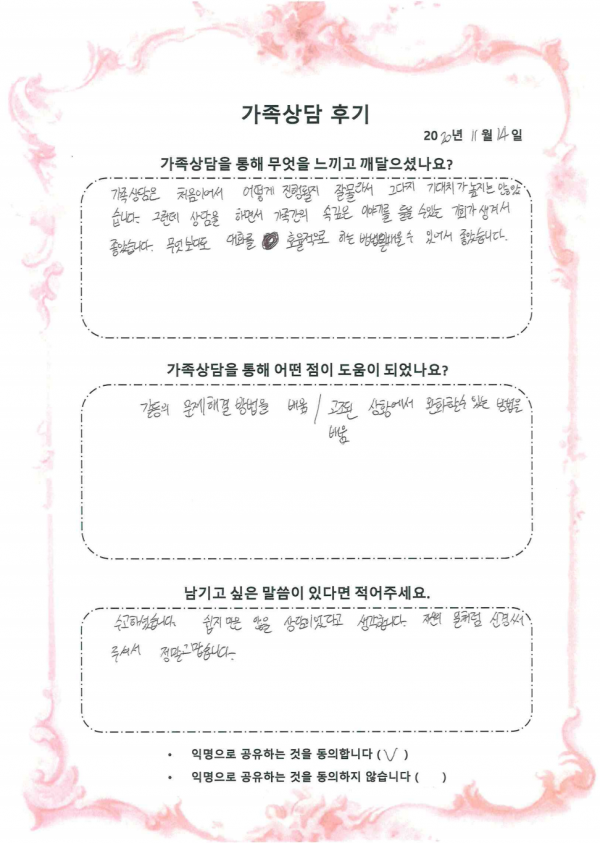 가족상담 후기
2020년 11월 14일
가족상담을 통해 무엇을 느끼고 깨달으셨나요?
가족상담은 처음이어서 어떻게 진행될지 잘몰라서 그다지 기대치가 높지는 않았
습니다. 그런데 상담을 하면서 가족간의 속깊은 이야기를 들을 수있는 기회가 생겨서
좋았습니다. 무엇보다도 대화를 효율적으로 하는 방법을배울 수 있어서 좋았습니다.
가족상담을 통해 어떤 점이 도움이 되었나요?
갈등의 문제해결 방법을 배움 / 고조된 상황에서 완화할수 있는 방법을
배움
남기고 싶은 말씀이 있다면 적어주세요.
수고하셨습니다. 쉽지만은 않을 상담이었다고 생각합니다. 자신의 일처럼 신경써
주셔서 정말고맙습니다.
• 익명으로 공유하는 것을 동의합니다 ( V )
• 익명으로 공유하는 것을 동의하지 않습니다 ( )